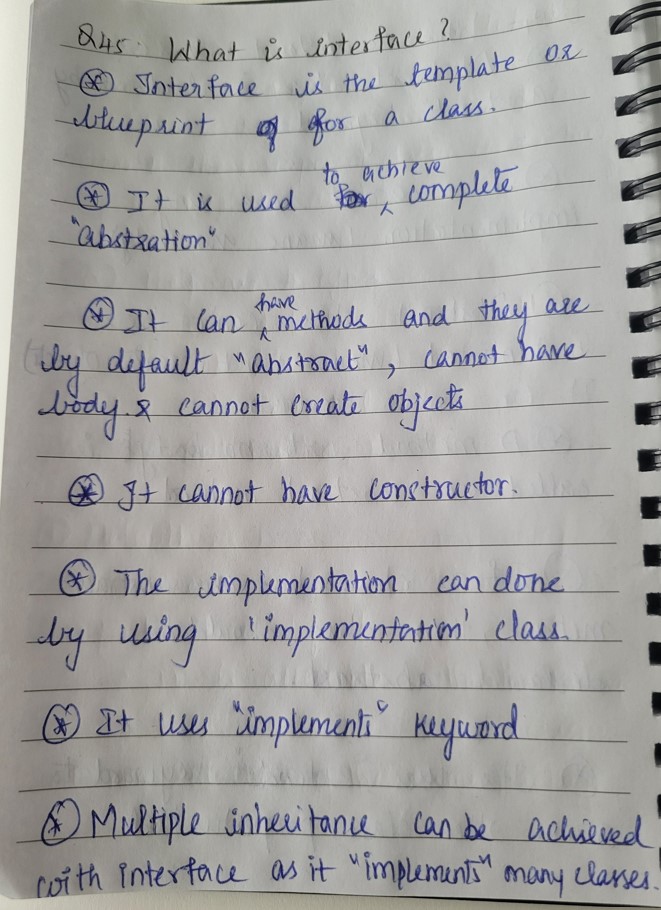 Q45. What is interface?
* Interface is the template or
blueprint of for a class.
to achieve
* It is used for ^ complete
"abstration"
have
* It can ^ methods and they are
by default "abstract", cannot have
body & cannot create objects
* It cannot have constructor.
* The implementation can done
by using 'implementation' class.
* It uses "implements" keyword
* Multiple inheritance can be achieved
with interface as it "implements" many classes.